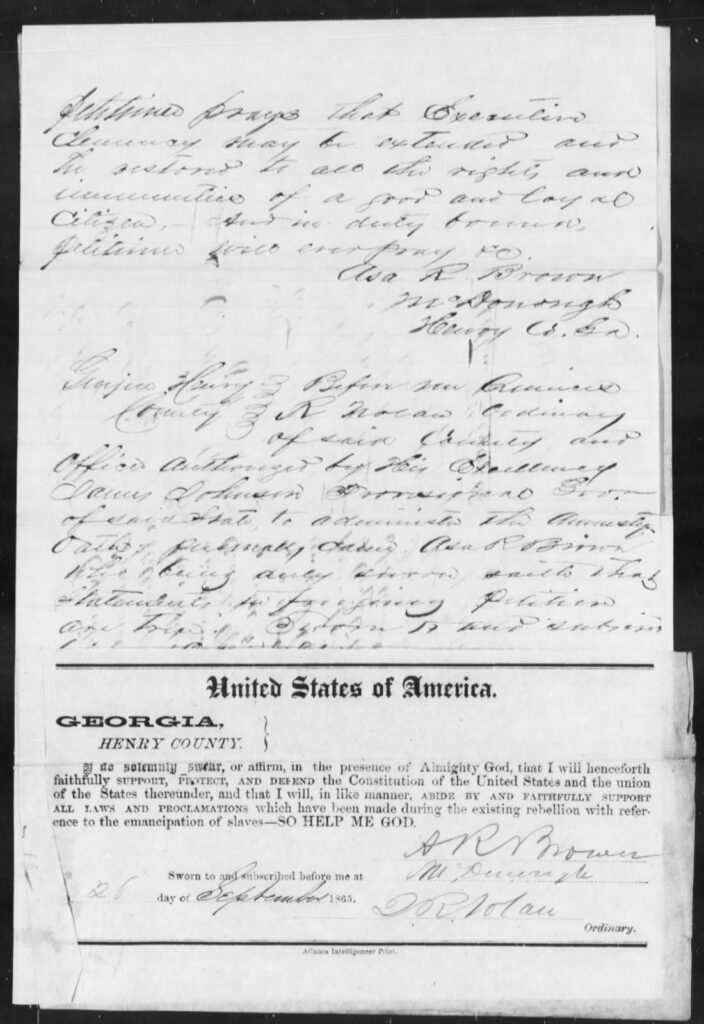 Petitioner prays that Executive
Clemency may be extended and
he restored to all the rights and
immunities of a good and loyal
Citizen, - And in duty bound,
petitioner will ever pray &c.
Asa R. Brown
McDonough
Henry Co. Ga.
Georgia Henry } Before me Quincy
County } R Nolan Ordinary
of said County and
Officer Authorized by His Excellency
James Johnson Provisional Govr
of said State, to administer the Amnesty
Oath, personally came Asa R Brown
who being duly sworn saith that
statements in foregoing petition
are true. Sworn to and subscri
United States of America.
GEORGIA,
HENRY COUNTY. }
I do solemnly swear, or affirm, in the presence of Almighty God, that I will henceforth
faithfully SUPPORT, PROTECT, AND DEFEND the Constitution of the United States and the union
of the States thereunder, and that I will, in like manner, ABIDE BY AND FAITHFULLY SUPPORT
ALL LAWS AND PROCLAMATIONS which have been made during the existing rebellion with refer-
ence to the emancipation of slaves—SO HELP ME GOD.
A R Brown
Sworn to and subscribed before me at McDonough
26 day of September 1865.
Q R Nolan
Ordinary.
Atlanta Intelligencer Print.